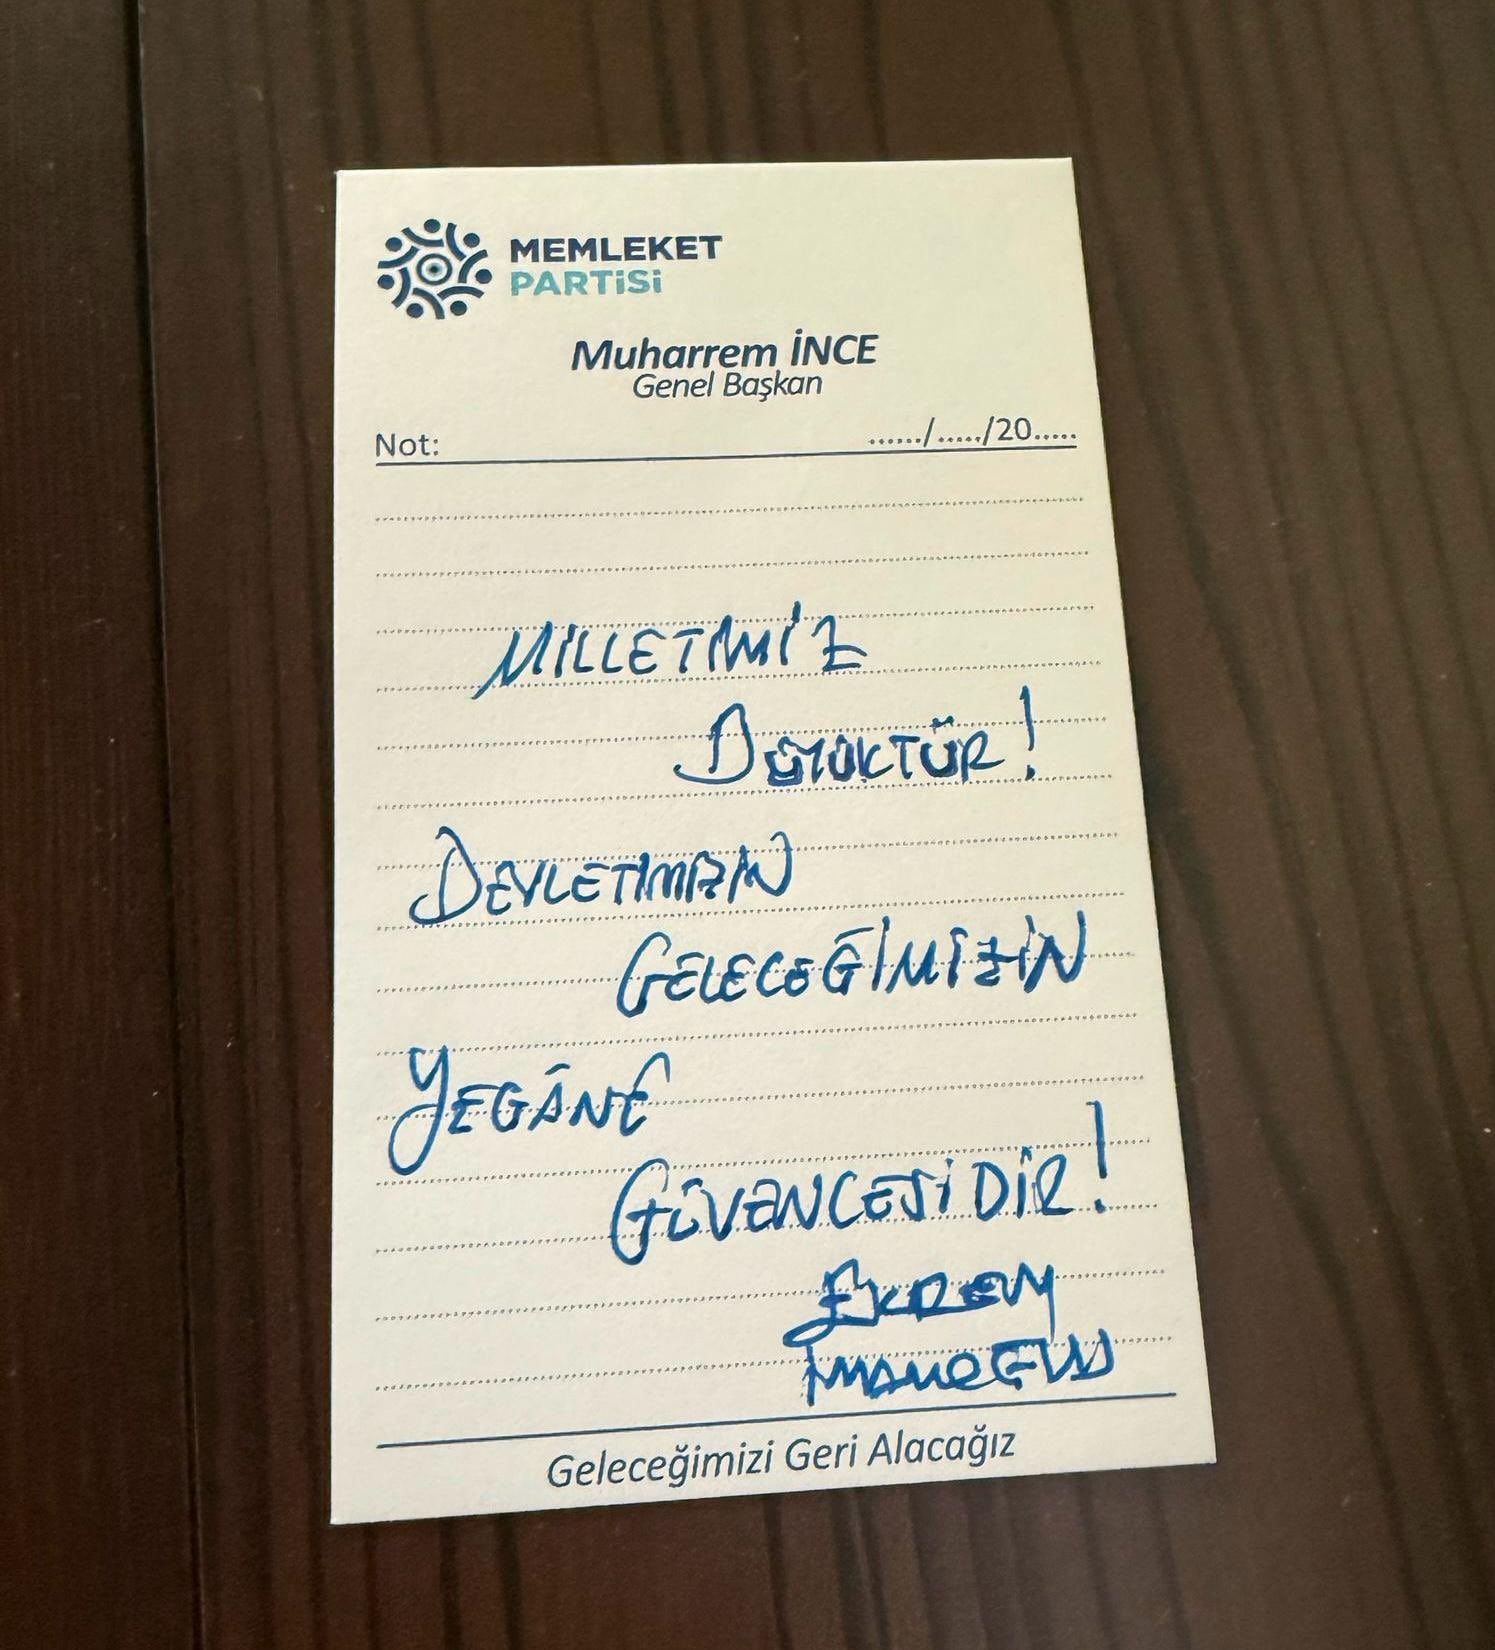 MEMLEKET
PARTiSi
Muharrem İNCE
Genel Başkan
Not: ....../...../20.....
MİLLETİMİZ
BÜYÜKTÜR!
DEVLETİMİZİN
GELECEĞİMİZİN
YEGÂNE
GÜVENCESİDİR!
EKREM
İMAMOĞLU
Geleceğimizi Geri Alacağız